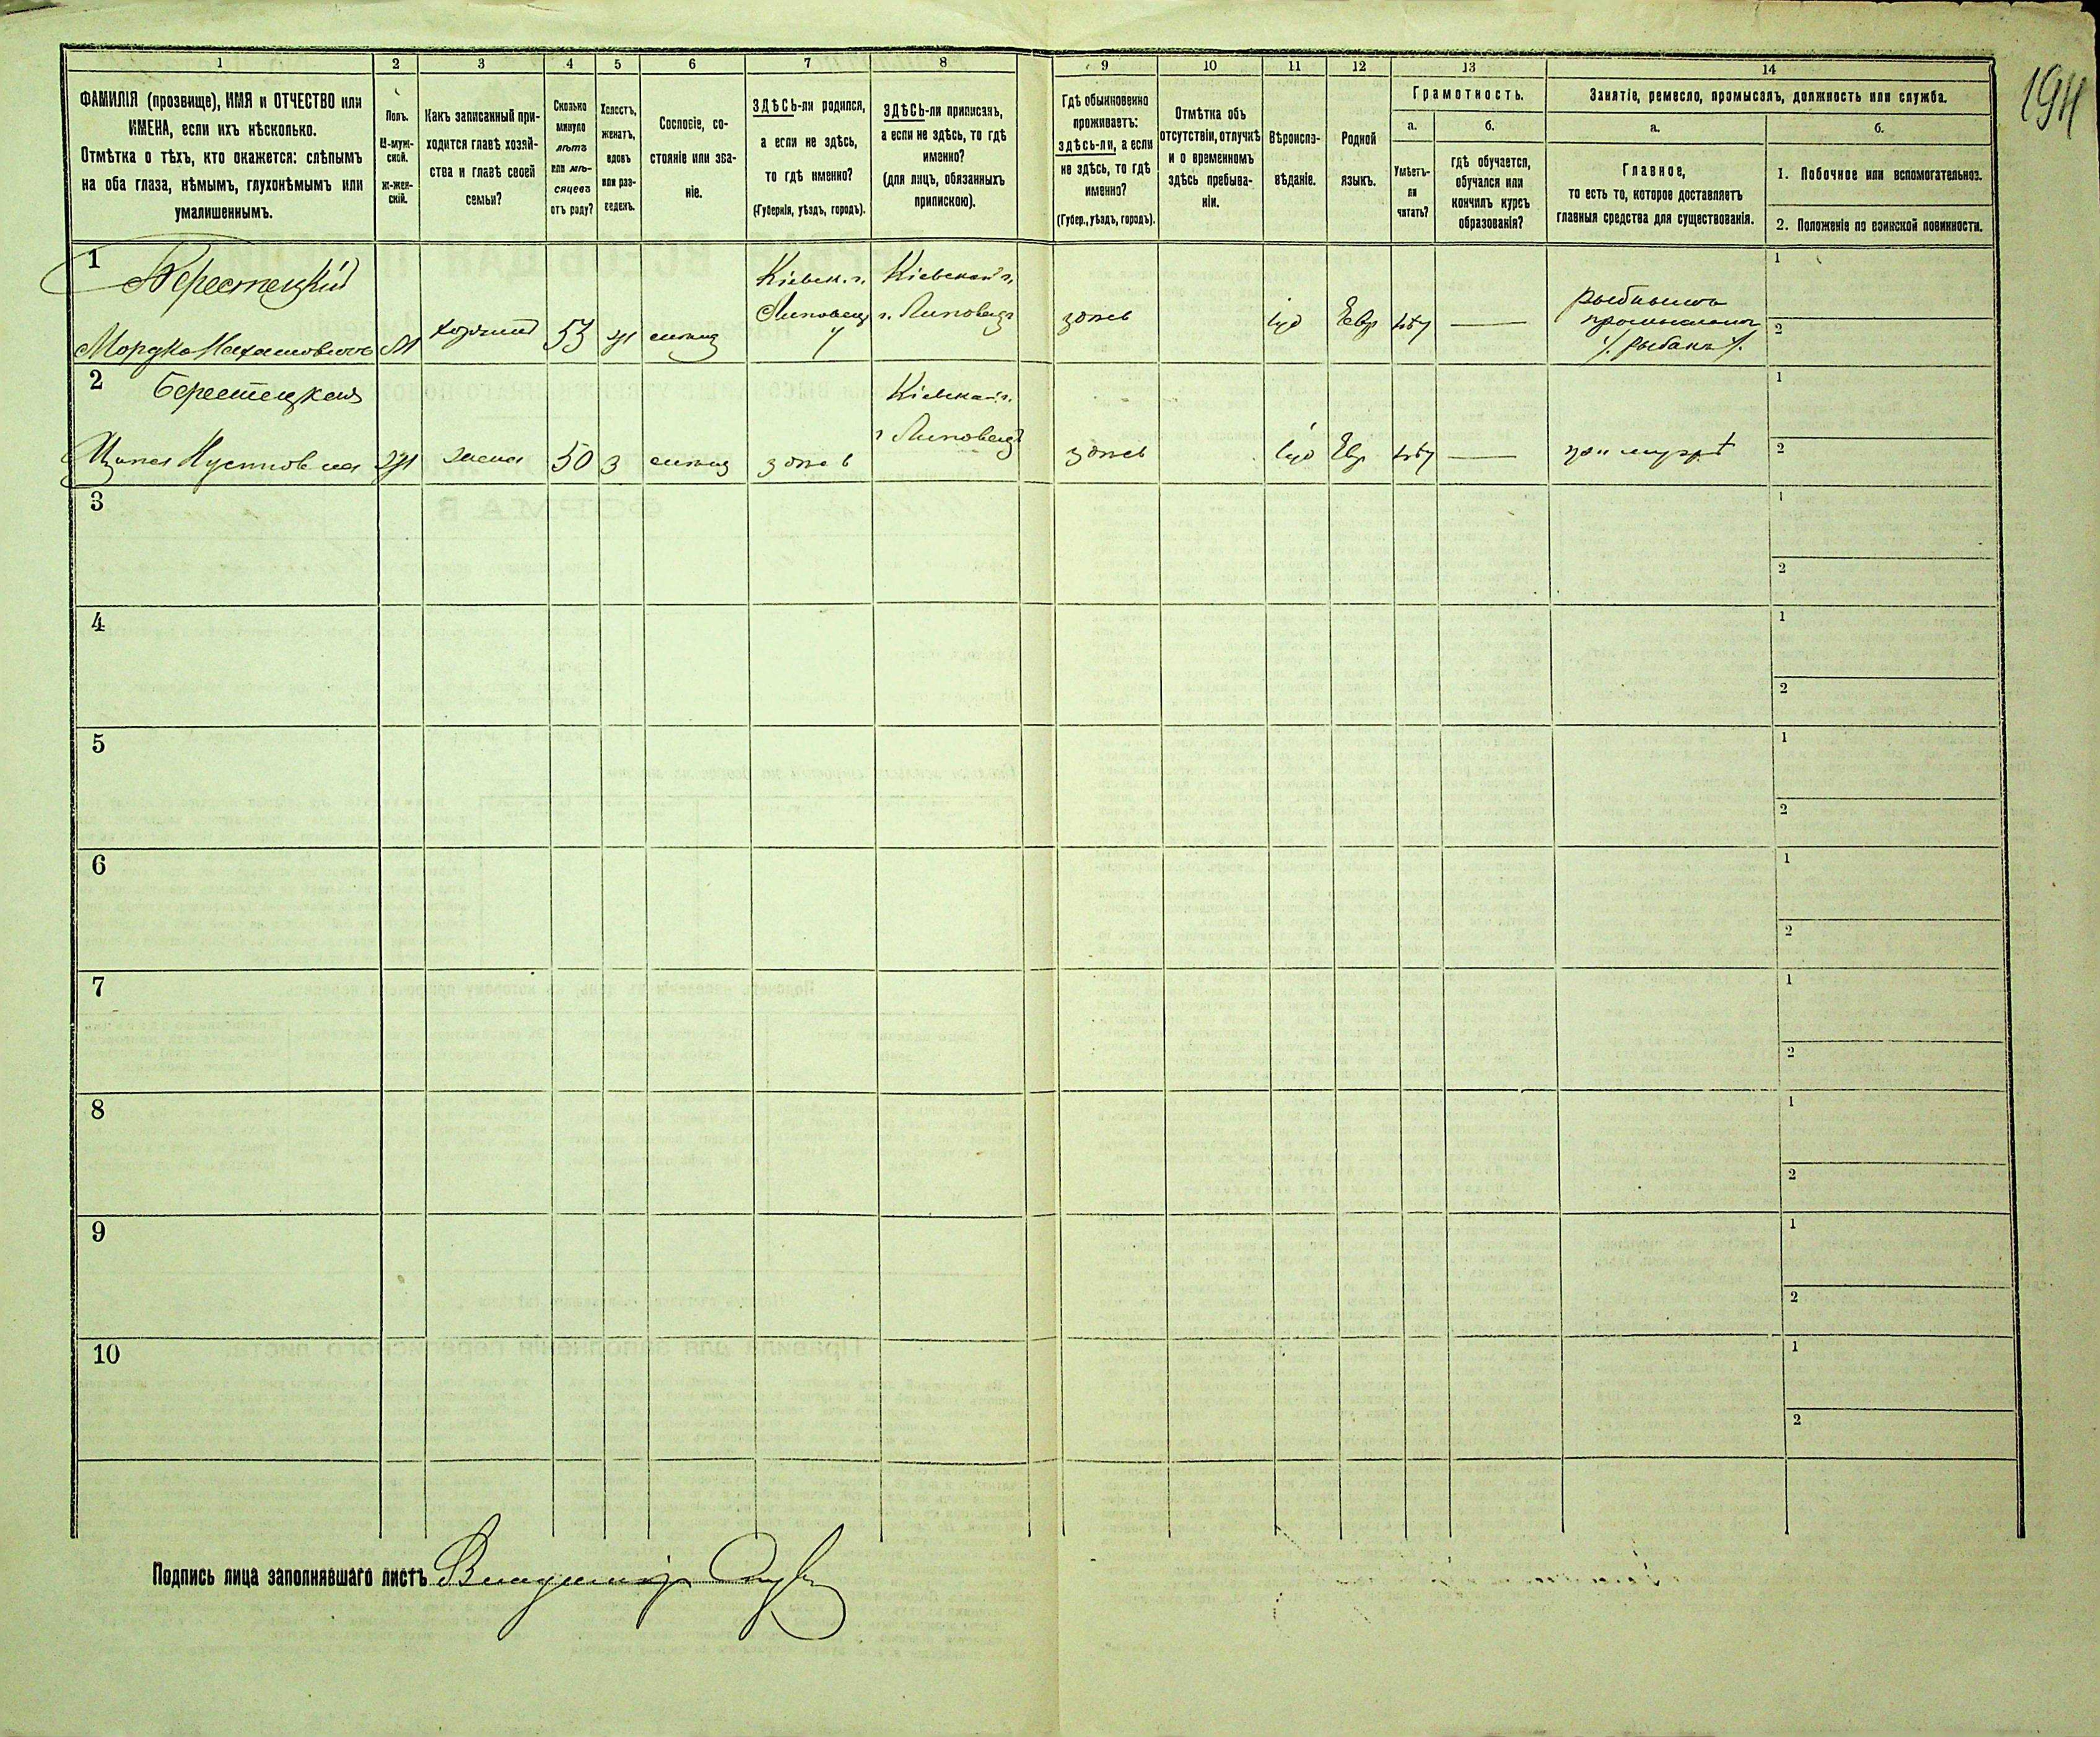 194
1
2
3
4
5
6
7
8
9
10
11
12
13
14
ФАМИЛІЯ (прозвище), ИМЯ и ОТЧЕСТВО или
ИМЕНА, если ихъ нѣсколько.
Отмѣтка о тѣхъ, кто окажется: слѣпымъ
на оба глаза, нѣмымъ, глухонѣмымъ или
умалишеннымъ.
Полъ.
М-муж-
ской.
Ж-жен-
скій.
Какъ записанный при-
ходится главѣ хозяй-
ства и главѣ своей
семьи?
Сколько
минуло
лѣтъ
или мѣ-
сяцевъ
отъ роду?
Холостъ,
женатъ,
вдовъ
или раз-
веденъ.
Сословіе, со-
стояніе или зва-
ніе.
ЗДѢСЬ-ли родился,
а если не здѣсь,
то гдѣ именно?
(Губернія, уѣздъ, городъ).
ЗДѢСЬ-ли приписанъ,
а если не здѣсь, то гдѣ
именно?
(для лицъ, обязанныхъ
припискою).
Гдѣ обыкновенно
проживаетъ:
здѣсь-ли, а если
не здѣсь, то гдѣ
именно?
(Губер., уѣздъ, городъ).
Отмѣтка объ
отсутствіи, отлучкѣ
и о временномъ
здѣсь пребыва-
ніи.
Вѣроиспо-
вѣданіе.
Родной
языкъ.
Грамотность.
а.
Умѣетъ-
ли
читать?
б.
гдѣ обучается,
обучался или
кончилъ курсъ
образованія?
Занятіе, ремесло, промыселъ, должность или служба.
а.
Главное,
то есть то, которое доставляетъ
главныя средства для существованія.
б.
1. Побочное или вспомогательное.
2. Положеніе по воинской повинности.
1
Берестецкій
Мордко
М
хозяинъ
53
Кіевск. г.
Липовец
у
Кіевской г.
г. Липовецъ
здѣсь
іуд
Евр
нѣт
рыбнымъ
промысломъ
/. рыбакъ /.
1
2
2
Берестецкая
жена
50
З
здѣсь
Кіевской г.
г Липовецъ
здѣсь
іуд
Евр
нѣт
при мужѣ
1
2
3
1
2
4
1
2
5
1
2
6
1
2
7
1
2
8
1
2
9
1
2
10
1
2
Подпись лица заполнявшаго листъ Владиміръ